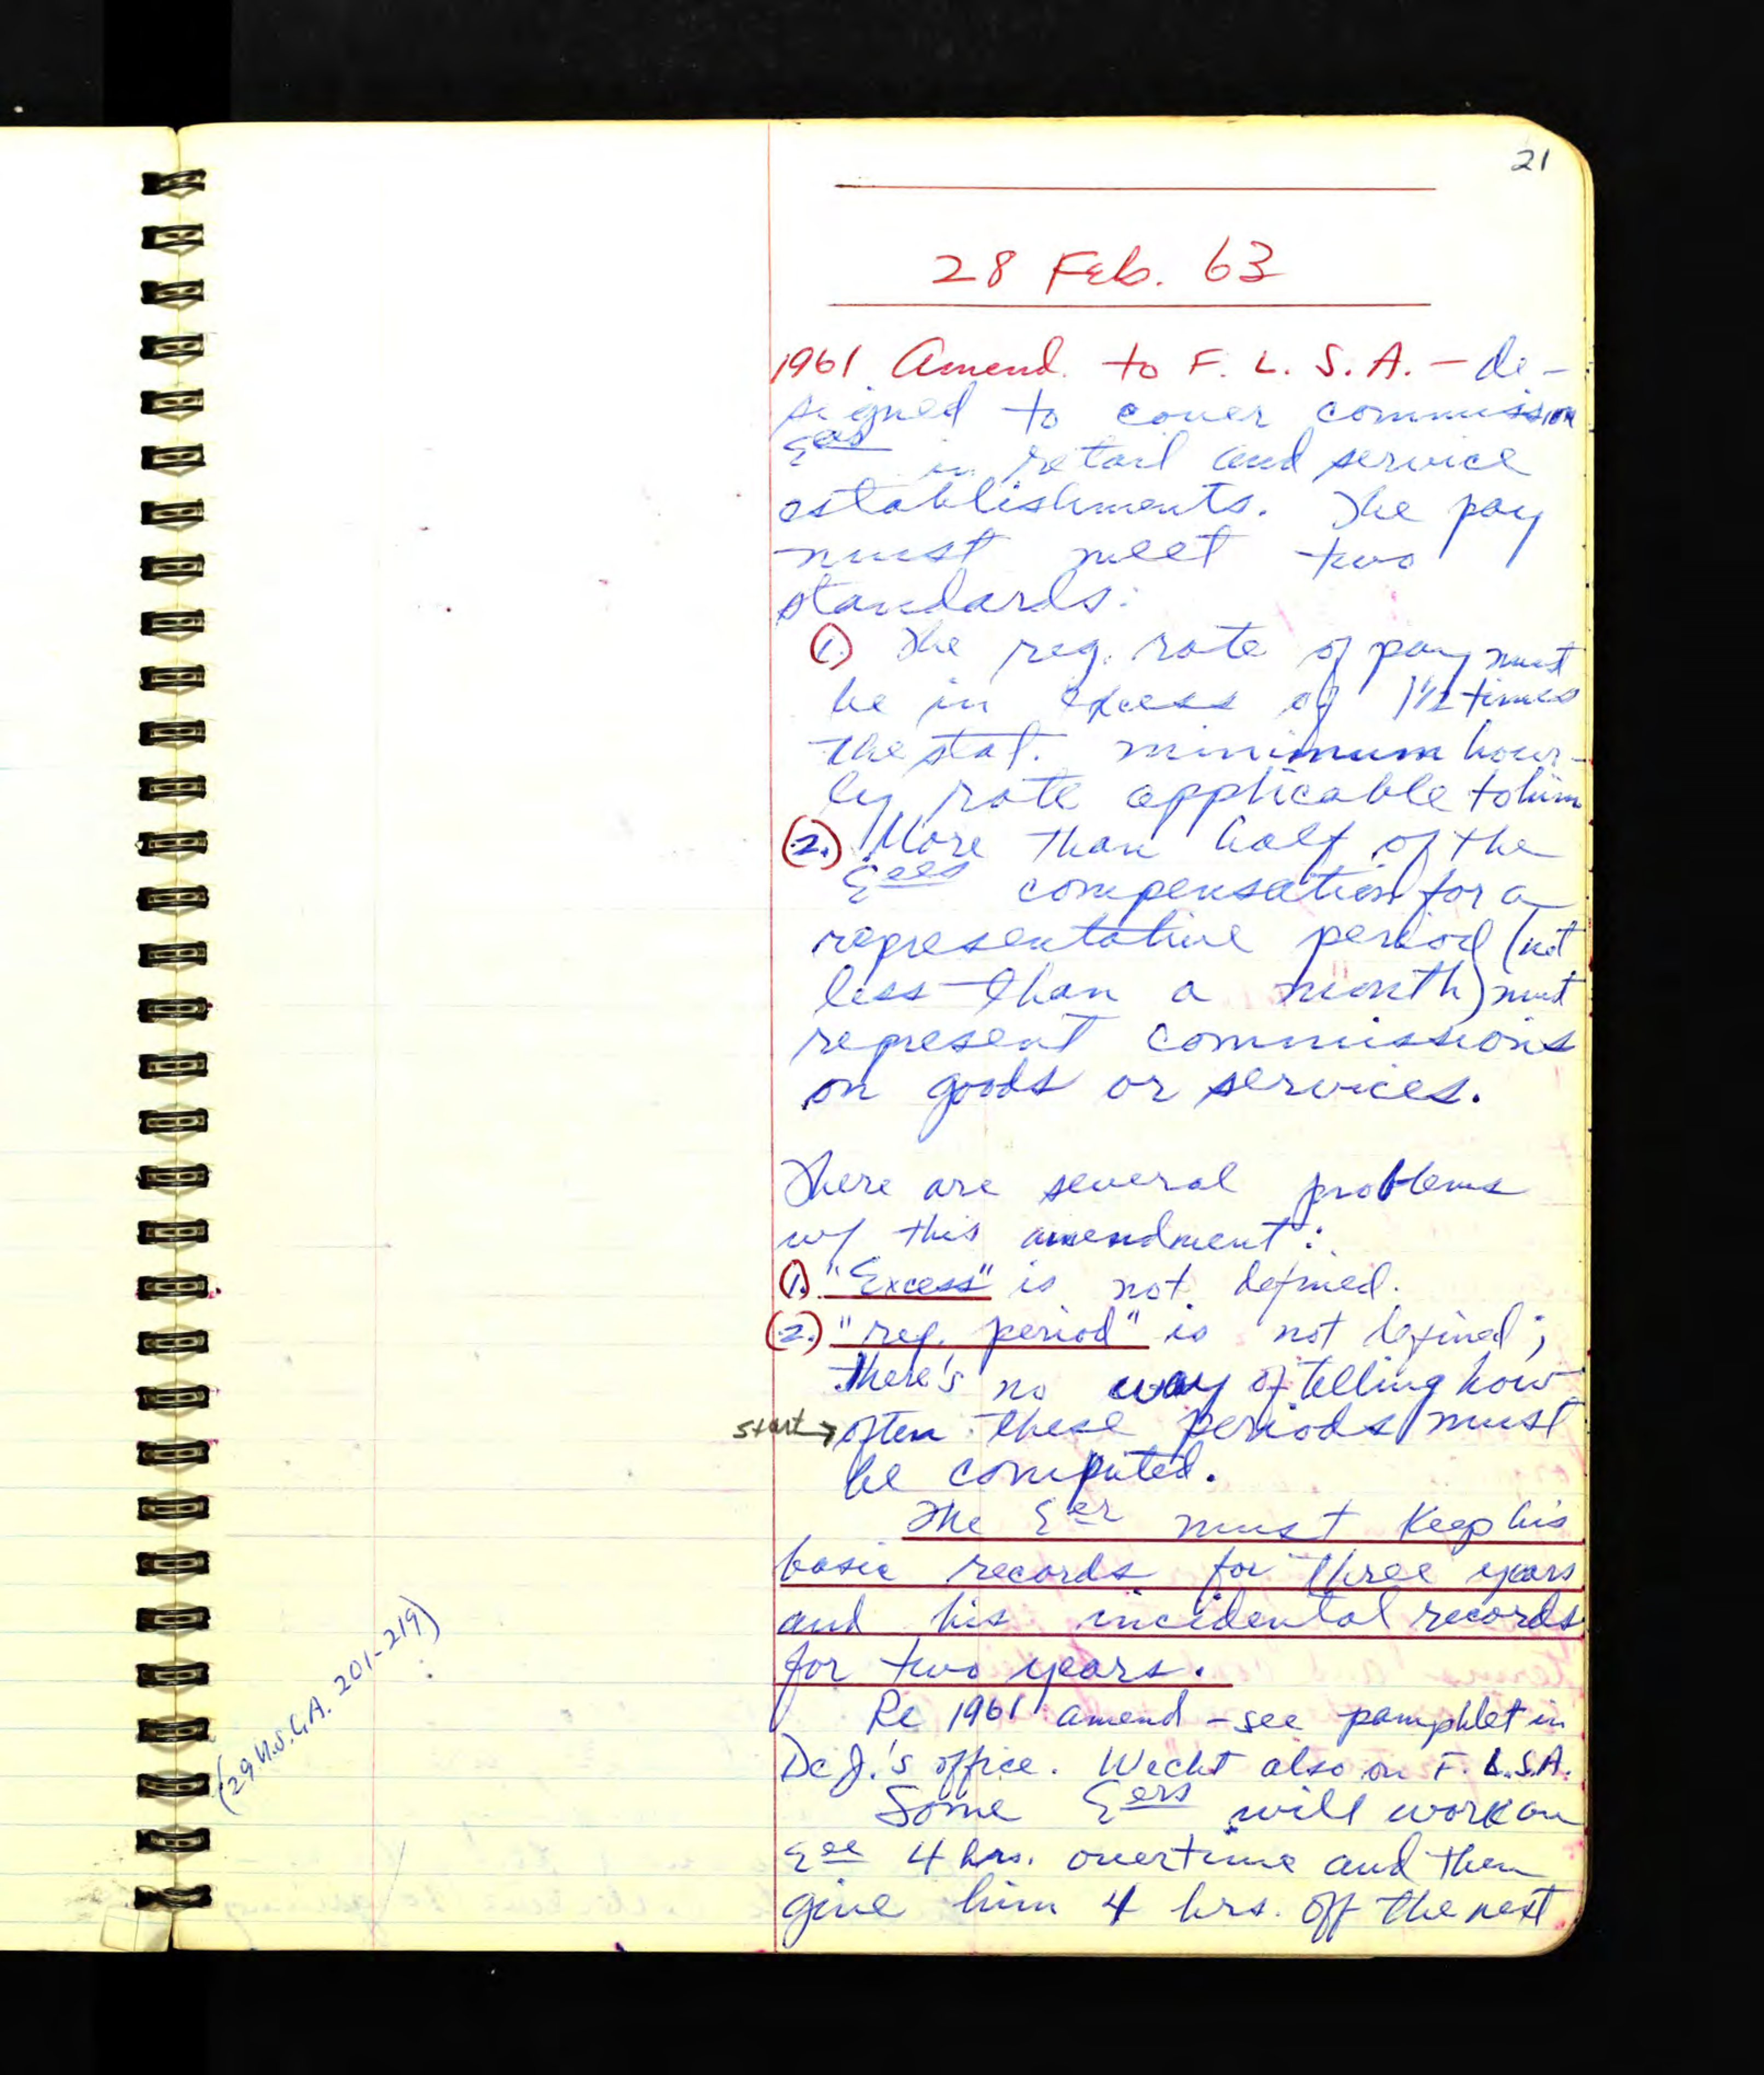 21
28 Feb. 63
1961 Amend. to F. L. S. A. - de-
signed to cover commission
Eees in retail and service
establishments. The pay
must meet two
standards:
1. The reg. rate of pay must
be in excess of 1 1/2 times
the stat. minimum hour-
ly rate applicable to him
(2.) More than half of the
Eees compensation for a
representative period (not
less than a month) must
represent commissions
on goods or services.
There are several problems
w/ this amendment:
1. "Excess" is not defined.
(2.) "rep. period" is not defined;
there's no way of telling how
start → often these periods must
be computed.
The Eer must keep his
basic records for three years
and his incidental records
for two years.
(29 U.S.C.A. 201-219)
Re 1961 amend - see pamphlet in
De J.'s office. Wecht also on F. L.S.A.
Some Eers will work an
Eee 4 hrs. overtime and then
give him 4 hrs. off the next